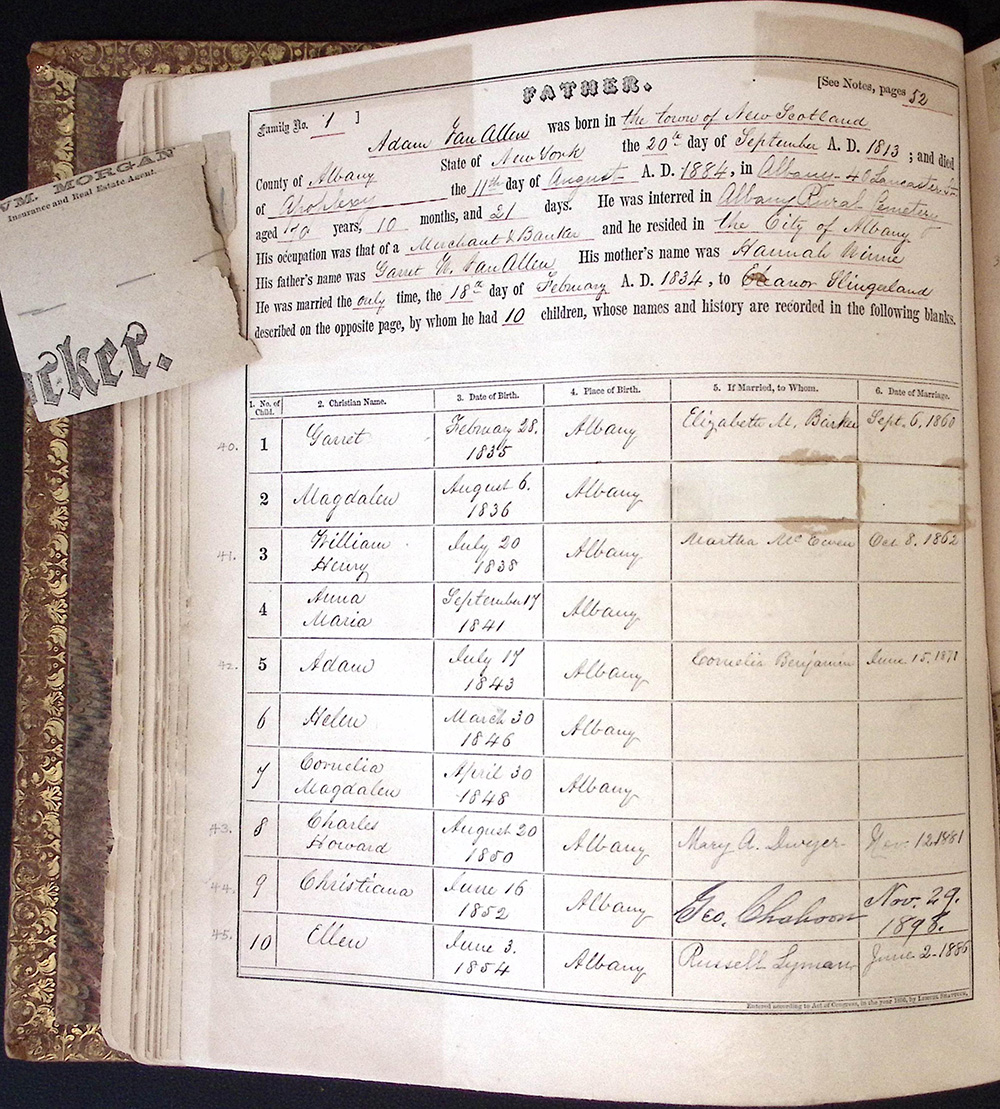 FATHER.
[See Notes, pages 52
Family No. 1 ]
Adam Van Allen was born in the town of New Scotland
County of Albany State of New York the 20th day of September A. D. 1813 ; and died
of Apoplexy the 11th day of August A. D. 1884, in Albany - 40 Lancaster St.
aged 70 years, 10 months, and 21 days. He was interred in Albany Rural Cemetery
His occupation was that of a Merchant & Banker and he resided in the City of Albany
His father's name was Garret W. Van Allen His mother's name was Hannah Winne
He was married the only time, the 18th day of February A. D. 1834, to Eleanor Slingerland
described on the opposite page, by whom he had 10 children, whose names and history are recorded in the following blanks.
WM. MORGAN
Insurance and Real Estate Agent.
cker.
1. No. of Child. 2. Christian Name. 3. Date of Birth. 4. Place of Birth. 5. If Married, to Whom. 6. Date of Marriage.
40. 1 Garret February 28. 1835 Albany Elizabeth M. Barker Sept. 6, 1860
2 Magdalen August 6. 1836 Albany
41. 3 William Henry July 20 1838 Albany Martha McEwen Oct 8, 1862
4 Anna Maria September 17 1841 Albany
42. 5 Adam July 17 1843 Albany Cornelia Benjamin June 15, 1871
6 Helen March 30 1846 Albany
7 Cornelia Magdalen April 30 1848 Albany
43. 8 Charles Howard August 20 1850 Albany Mary A. Dwyer Nov. 12 1881
44. 9 Christiana June 16 1852 Albany Geo. Chahoon Nov. 29. 1898.
45. 10 Ellen June 3. 1854 Albany Russell Lyman June 2- 1886
Entered according to Act of Congress, in the year 1856, by Lemuel Shattuck,